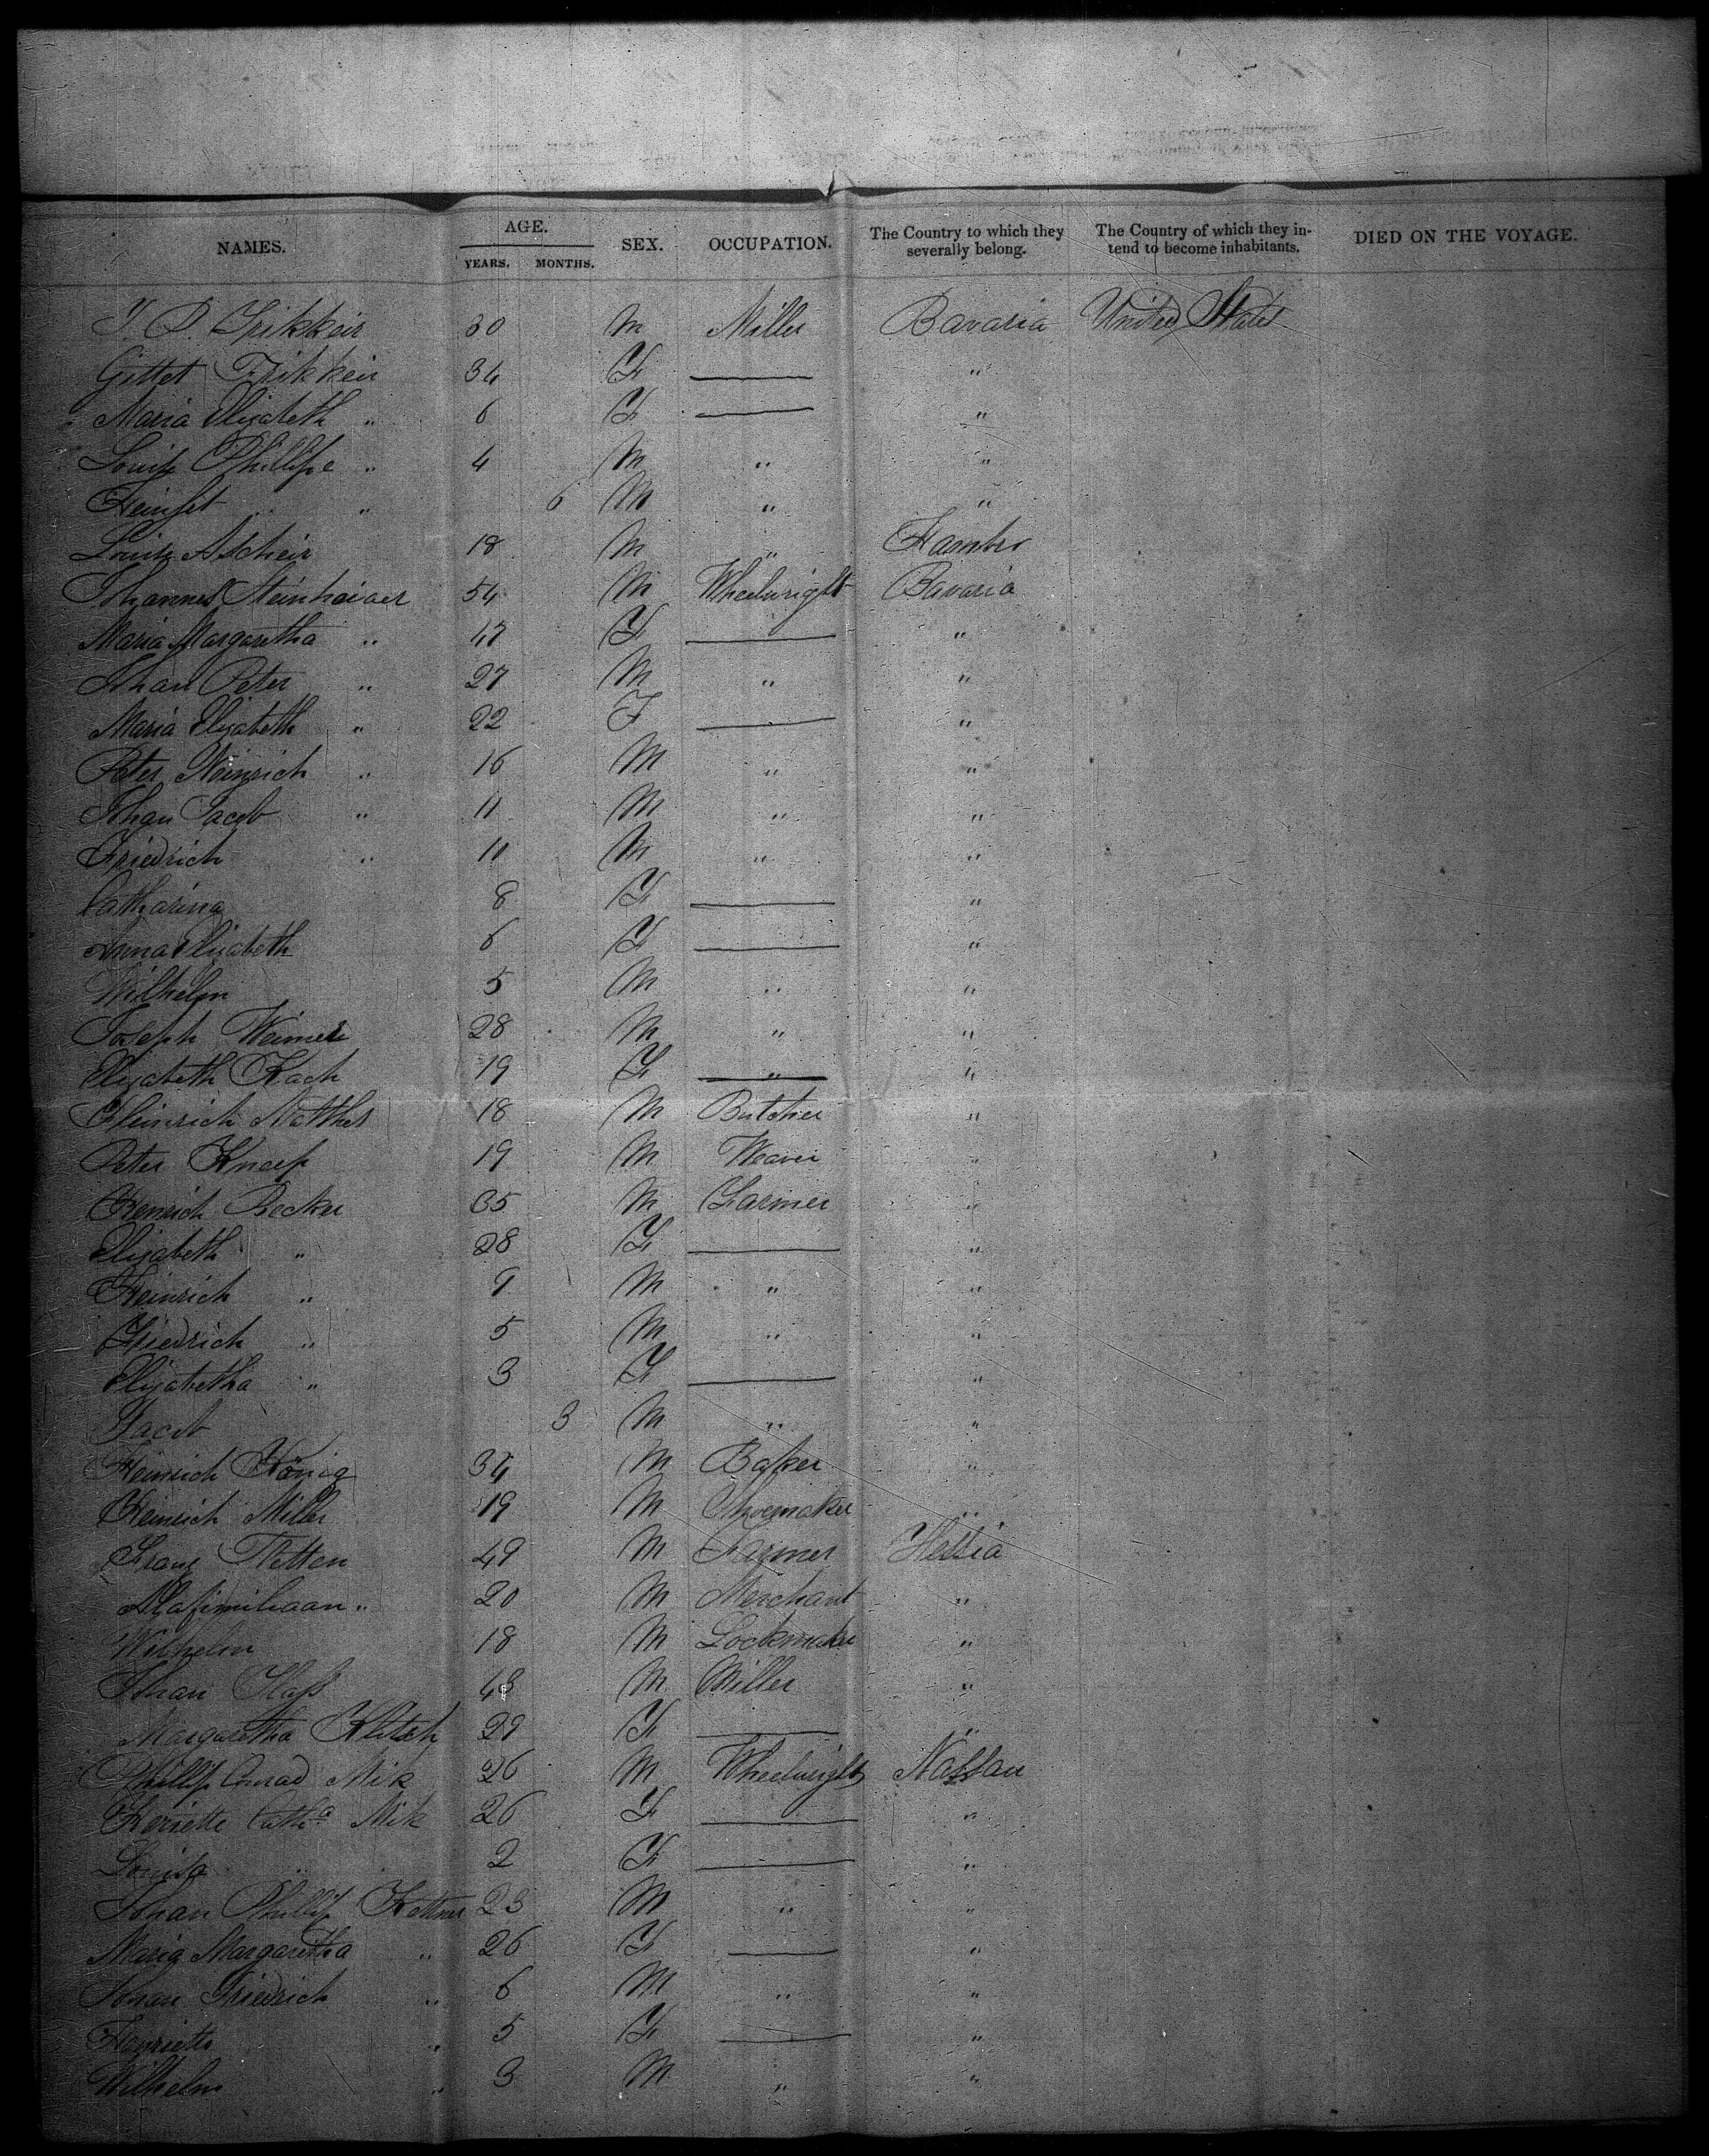 NAMES. AGE. YEARS. MONTHS. SEX. OCCUPATION. The Country to which they severally belong. The Country of which they intend to become inhabitants. DIED ON THE VOYAGE.
30 M Miller Bavaria United States
34 F "
Maria Elizabeth " 6 F "
Phillipe " 4 M " "
" 6 M " "
18 M " Hambro
Johannes 54 M Wheelwright Bavaria
Maria Margaretha " 47 F "
Johan Peter " 27 M " "
Maria Elizabeth " 22 F "
Peter Heinrich " 16 M " "
Johan Jacob " 11 M " "
Friedrich " 11 M " "
Catharina 8 F "
Anna Elizabeth 6 F "
Wilhelm 5 M " "
Joseph 28 M " "
Elizabeth Kach 19 F " "
Heinrich Matthes 18 M Butcher "
Peter Knaep 19 M Weaver "
Henrich Becker 35 M Farmer "
Elizabeth " 28 F "
Heinrich " 9 M " "
Friedrich " 5 M " "
Elizabetha " 3 F "
Jacob 3 M " "
Heinrich König 34 M Baker "
Heinrich Miller 19 M Shoemaker "
Franz 49 M Farmer Hessia
Maximiliaan " 20 M Merchant "
Wilhelm 18 M Lockmaker "
Johan M Miller "
Margaretha 29 F "
Phillip Conrad Mik 26 M Wheelwright Nassau
Cath.a Mik 26 F "
Louisa " 2 F "
Johan Phillip Kattner 23 M " "
Maria Margaretha " 26 F "
Johan Friedrich " 6 M " "
Henriette " 5 F "
Wilhelm " 3 M " "